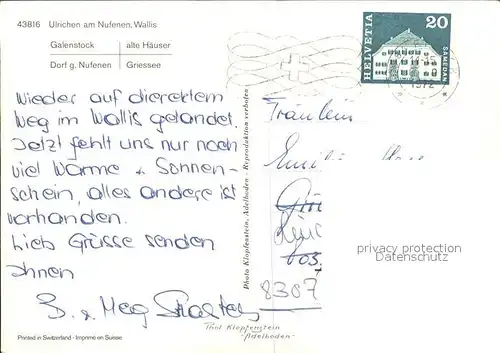 43816 Ulrichen am Nufenen, Wallis
Galenstock alte Häuser
Dorf g. Nufenen Griessee
HELVETIA
20
SAMEDAN
1972
Wieder auf dierektem
Weg im Wallis gelandet.
Jetzt fehlt uns nur noch
viel Wärme & Sonnen-
schein, alles andere ist
vorhanden.
Lieb Grüsse senden
ihnen
B. & Meg
Photo Klopfenstein, Adelboden - Reproduktion verboten
Fräulein
privacy protection
Datenschutz
8307
Thol Klopfenstein
"Adelboden"
Printed in Switzerland - Imprimé en Suisse